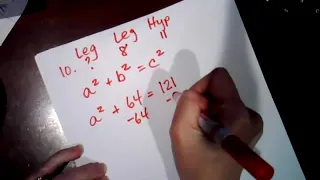 Leg Leg Hyp
10. ? 8 11
a² + b² = c²
a² + 64 = 121
-64 -